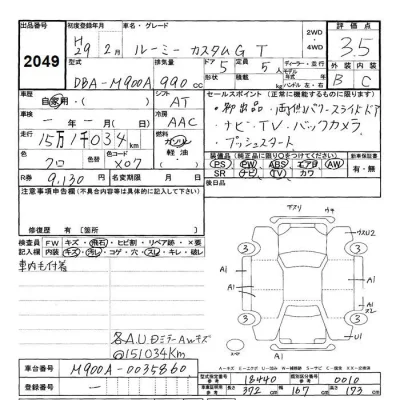 出品番号
2049
初度登録年月
H29年2月
車名・グレード
ルーミー カスタムG T
2WD
4WD
評価点
3.5
型式
DBA-M900A
排気量
990 cc
ドア
5
定員
5
ディーラー・並行
モデル
年式
ハンドル 左・右
外装
内装
B
C
車歴
自家用・( )
シフト
AT
車検
一年一月
冷房
AAC
走行
15万1千034km
燃料
ガソリン
軽油
色
クロ
色替
色コード
X07
R券
9,130円
名変期限
月 日
セールスポイント(正常に機能するものに限ります)
・初出品・両側パワースライドドア
・ナビ・TV・バックカメラ
・プッシュスタート
装備品(純正品に限り○をつけてください)
PS PW ABS エアB AW
SR ナビ TV カワ
有・無
後日品
注意事項申告欄(不具合内容等は具体的に記入して下さい)
修復歴 有 [箇所
検査員
記入欄
FW キズ・飛石・ヒビ割・リペア跡・×要
内装 キズ・汚レ・コゲ・穴・スレ・キレ・破レ
車内も付着
各A.U ロミラーAwキズ
@151034Km
車台番号
M900A-0035860
登録番号
一
型式指定番号
参考
18440
類別区分番号
参考
0010
車両寸法
参考
長さ
372
cm
幅
167
cm
高さ
173
cm